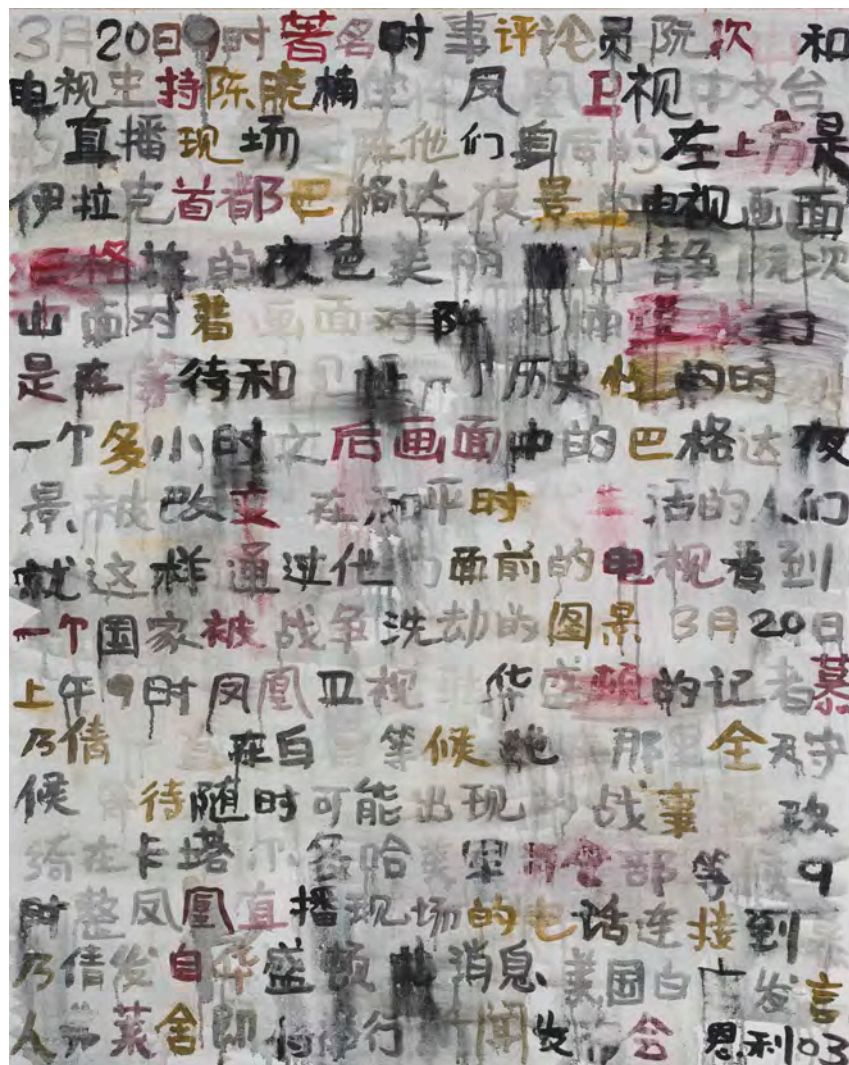 3月20日9时著名时事评论员阮次山和
电视主持陈晓楠坐在凤凰卫视中文台
的直播现场 在他们身后的左上方是
伊拉克首都巴格达夜景的电视画面
巴格达的夜色美丽 宁静阮次
山面对着画面对陈晓楠 我们
是在等待和见证 了历史性的时刻
一个多小时之后画面中的巴格达夜
景被改变 在和平时 生活的人们
就这样通过他们面前的电视看到
一个国家被战争洗劫的图景 3月20日
上午9时凤凰卫视驻华盛顿的记者慕
乃倩 直在白宫等候她 那里全天守
候 待随时可能出现的战事 玫
绮在卡塔尔 哈 等候9
时整凤凰直播现场的电话连接到慕
乃倩发自华盛顿 消息 美国白宫发言
人弗莱舍即 举行新闻发布会 恩利03